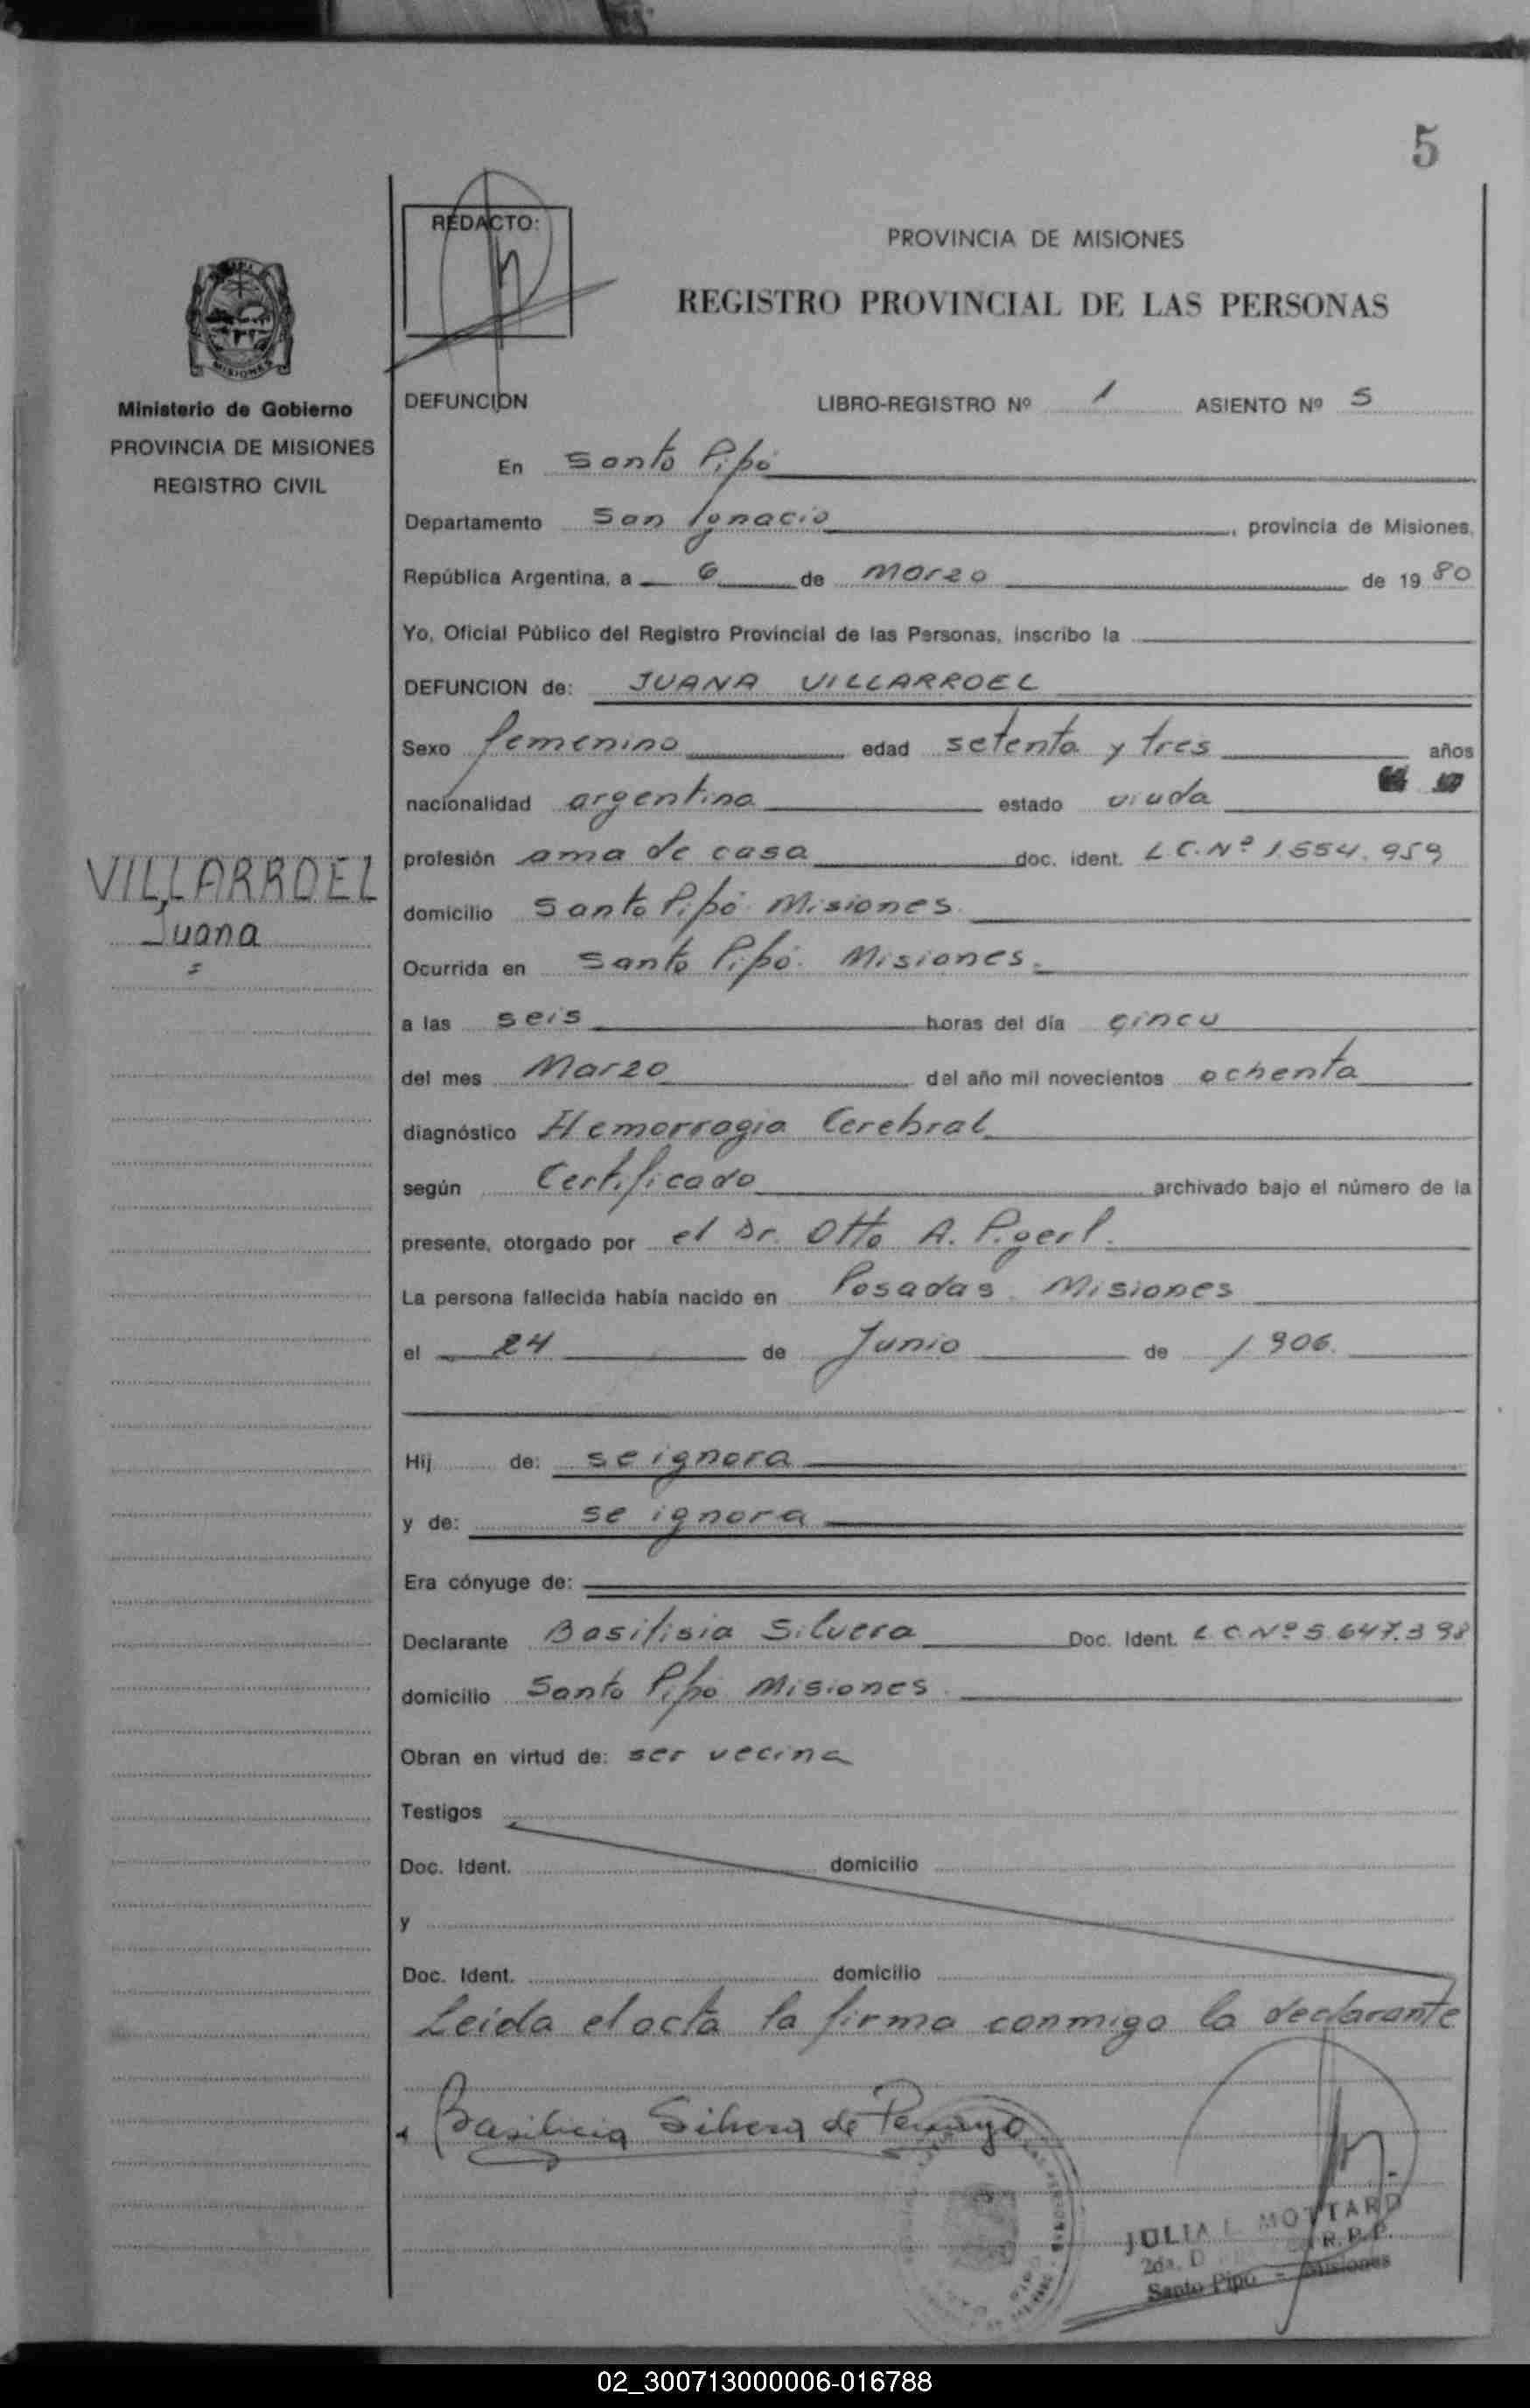 5
REDACTO:
PROVINCIA DE MISIONES
REGISTRO PROVINCIAL DE LAS PERSONAS
MISIONES
Ministerio de Gobierno
PROVINCIA DE MISIONES
REGISTRO CIVIL
DEFUNCION LIBRO-REGISTRO Nº 1 ASIENTO Nº 5
En Santo Pipó
Departamento San Ignacio, provincia de Misiones,
República Argentina, a 6 de Marzo de 1980
Yo, Oficial Público del Registro Provincial de las Personas, inscribo la
DEFUNCION de: JUANA VILLARROEL
Sexo femenino edad setenta y tres años
nacionalidad argentina estado viuda
profesión ama de casa doc. ident. L.C.Nº 1.554.959
VILLARROEL
Juana
5
domicilio Santo Pipó Misiones
Ocurrida en Santo Pipó. Misiones.
a las seis horas del día cinco
del mes Marzo del año mil novecientos ochenta
diagnóstico Hemorragia Cerebral
según Certificado archivado bajo el número de la
presente, otorgado por el Dr. Otto A.
La persona fallecida había nacido en Posadas Misiones
el 24 de Junio de 1906.
Hij de: se ignora
y de: se ignora
Era cónyuge de:
Declarante Basilisia Silvera Doc. Ident. L.C.Nº 5.647.398
domicilio Santo Pipó Misiones
Obran en virtud de: ser vecina
Testigos
Doc. Ident. domicilio
y
Doc. Ident. domicilio
Leida el acta la firma conmigo la declarante
Silvera de
JULIA L. MOTTARD
2da. D R.P.P.
Santo Pipó - Misiones
02_300713000006-016788